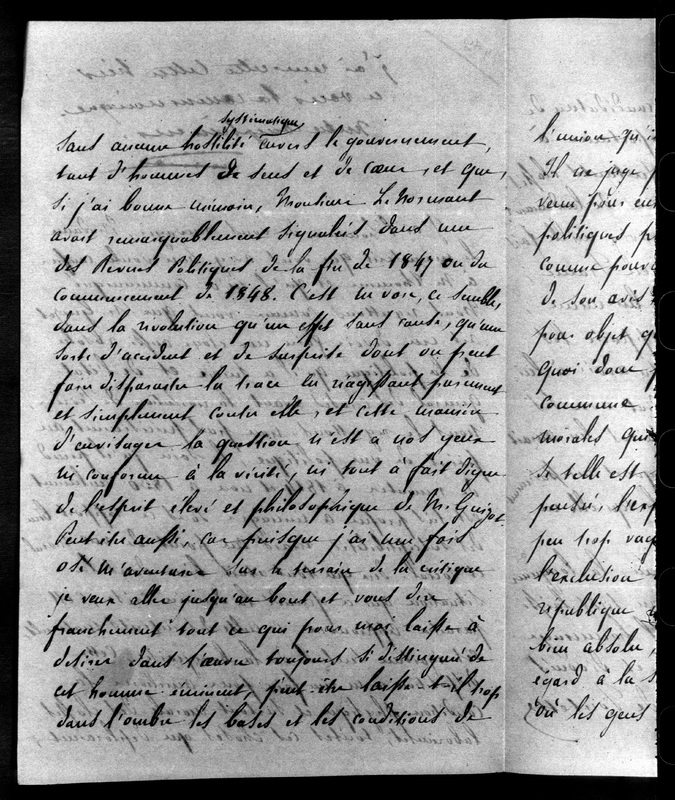 systématique
sans aucune hostilité envers le gouvernement,
tant d'hommes de sens et de cœur, et que,
si j'ai bonne mémoire, Monsieur Le Normant
avait remarquablement signalés dans une
des Revues Politiques de la fin de 1847 ou du
commencement de 1848. C'est ne voir, ce semble,
dans la révolution qu'un effet sans cause, qu'une
sorte d'accident et de surprise dont on peut
faire disparaître la trace en réagissant purement
et simplement contre elle, et cette manière
d'envisager la question n'est à nos yeux
ni conforme à la vérité, ni tout à fait digne
de l'esprit élevé et philosophique de M. Guizot
Peut être aussi, car puisque j'ai une fois
osé m'aventurer sur le terrain de la critique
je veux aller jusqu'au bout et vous dire
franchement tout ce qui pour moi laisse à
désirer dans l'œuvre toujours si distinguée de
cet homme éminent, peut être laisse t-il trop
dans l'ombre les bases et les conditions de
l'union qu'i
Il ne juge p
venu pour en
politiques p
comme pouvo
de son avis
pour objet q
quoi donc
commune
morales qu
si telle est
pensée, l'exp
peu trop vag
l'exclusion
république
bien absolu,
égard à la s
où les gens